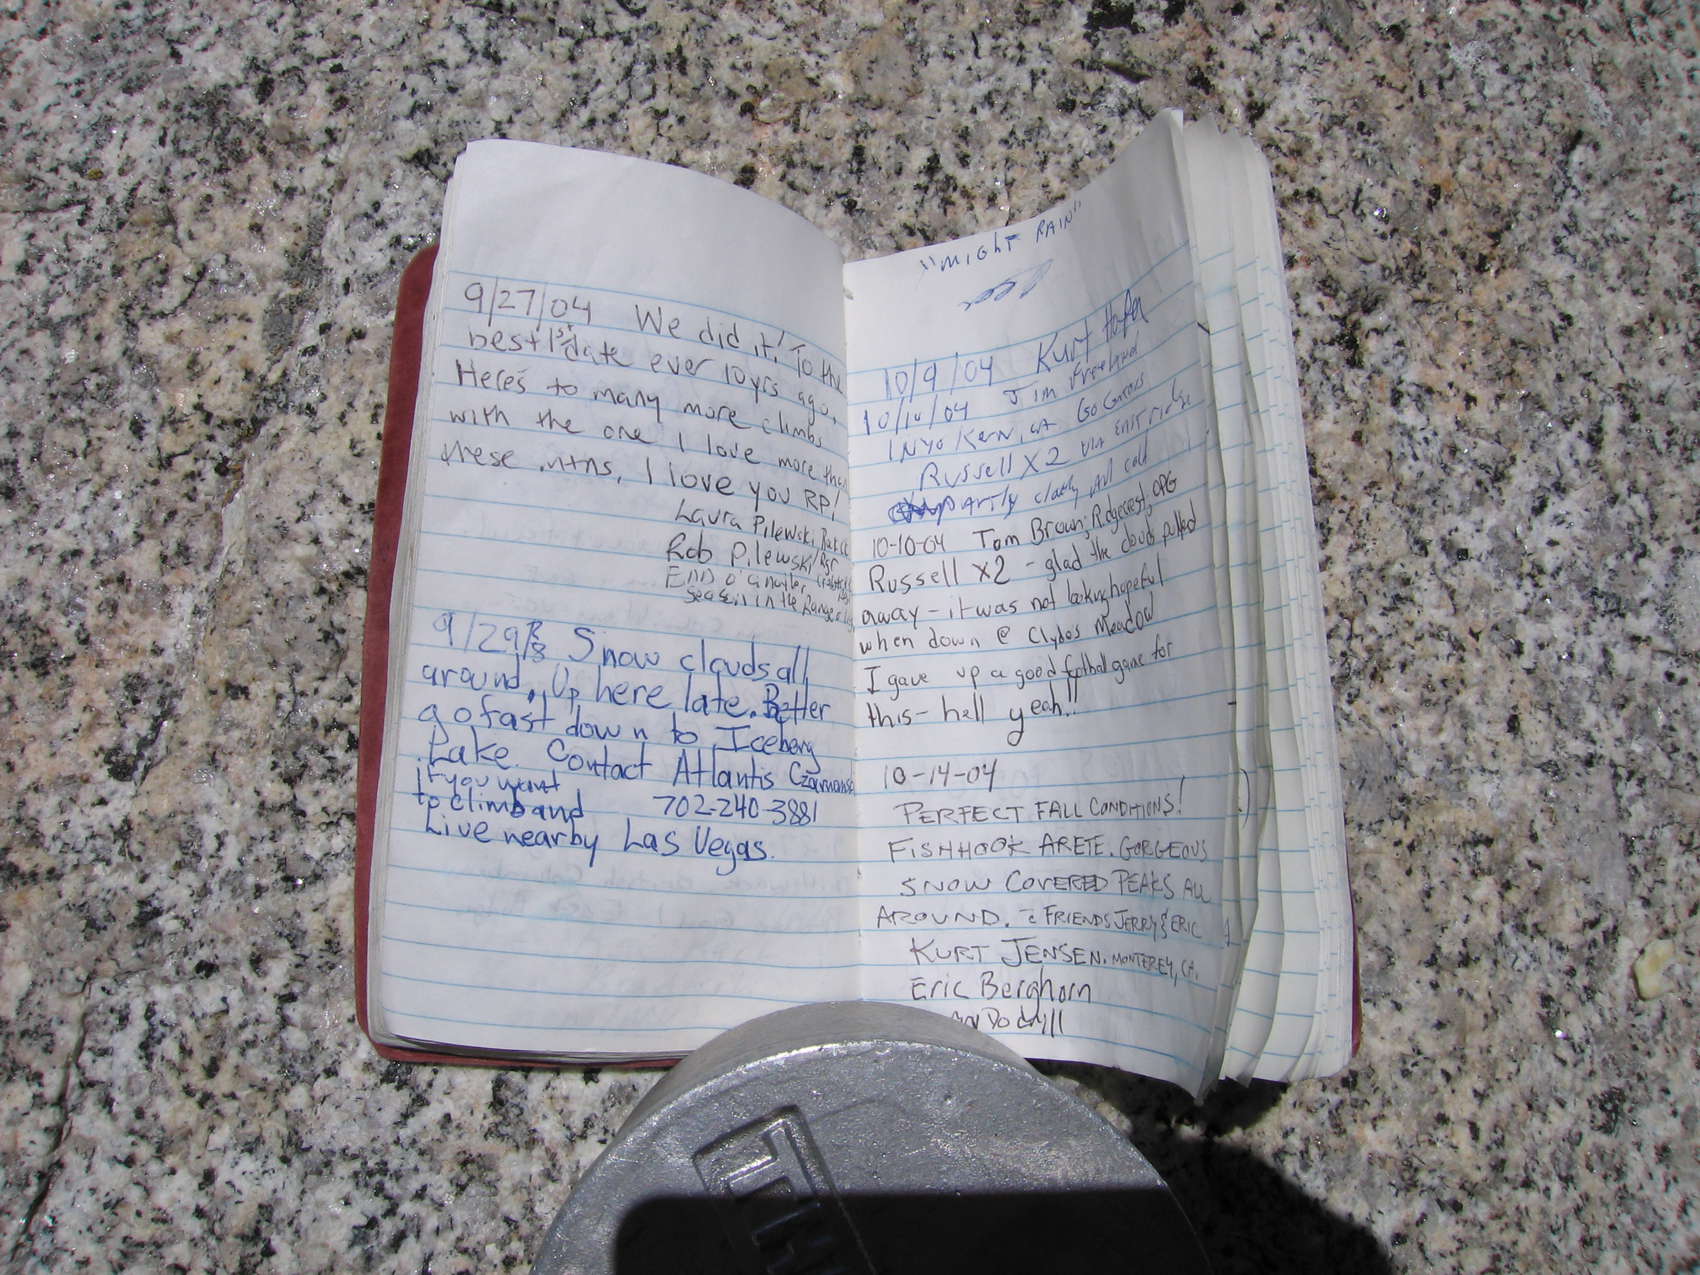 9/27/04 We did it! To the
best 1st date ever 10 yrs ago.
Here's to many more climbs
with the one I love more then
these mtns. I love you RP!
Laura Pilewski
Rob Pilewski
End o' another
season in the Range
9/29 Snow clouds all
around. Up here late. Better
go fast down to Iceberg
Lake. Contact Atlantis
if you want
to climb and 702-240-3881
Live nearby Las Vegas.
"MIGHT RAIN"
10/9/04 Kurt
10/10/04 Jim
INYO KERN, CA
RUSSELL X2 VIA EAST ridge
PARTLY cloudy AND cold
10-10-04 Tom Brown, Ridgecrest,
Russell x2 - glad the clouds pulled
away - it was not looking hopeful
when down @ Clydes Meadow
I gave up a good football game for
this - hell yeah!!
10-14-04
PERFECT FALL CONDITIONS!
FISHHOOK ARETE. GORGEOUS
SNOW COVERED PEAKS ALL
AROUND. FRIENDS JERRY & ERIC
KURT JENSEN. MONTEREY, CA.
Eric Berghorn
Dodrill